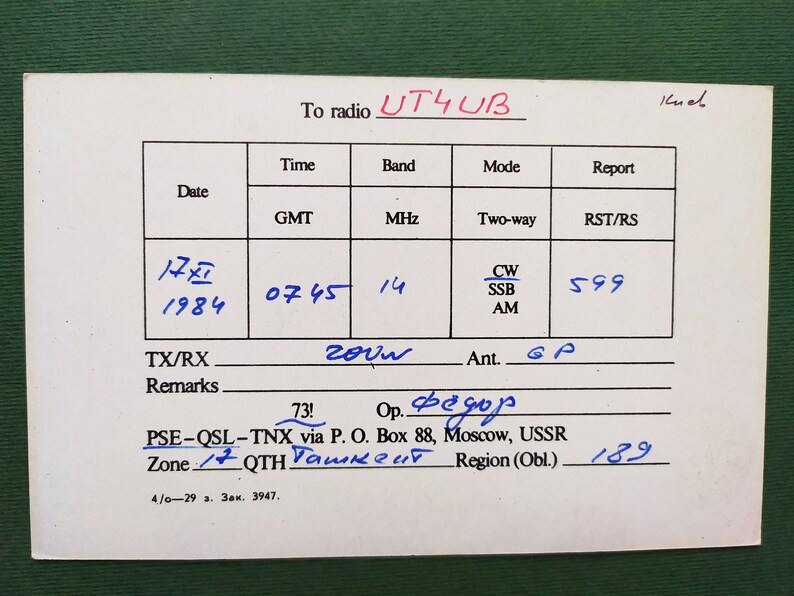 To radio UT4UB Киев
Date Time Band Mode Report
GMT MHz Two-way RST/RS
17 XI 1984 0745 14 CW SSB AM 599
TX/RX 200W Ant. GP
Remarks
73! Op. Фёдор
PSE-QSL-TNX via P. O. Box 88, Moscow, USSR
Zone 17 QTH Ташкент Region (Obl.) 189
4/о—29 з. Зак. 3947.